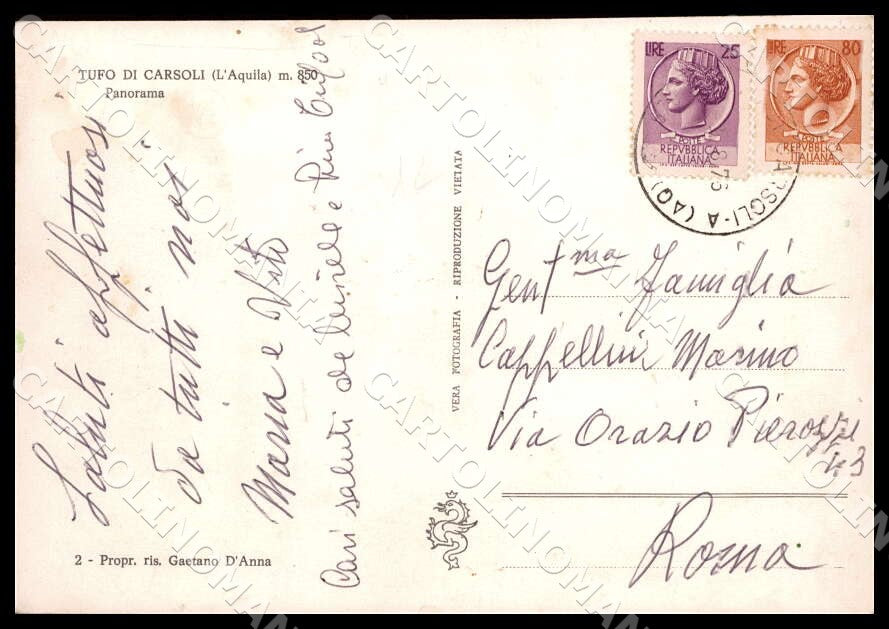 TUFO DI CARSOLI (L'Aquila) m. 850
Panorama
Saluti affettuosi
da tutti noi
Maria e Vito
Cari saluti da e
2 - Propr. ris. Gaetano D'Anna
VERA FOTOGRAFIA - RIPRODUZIONE VIETATA
LIRE 25
POSTE
REPVBBLICA
ITALIANA
LIRE 80
POSTE
REPVBBLICA
ITALIANA
RSOLI-A (AQ)
Gent.ma Famiglia
Cappellini Marino
Via Orazio Pierozzi
43
Roma
CARTOLINOMANIA